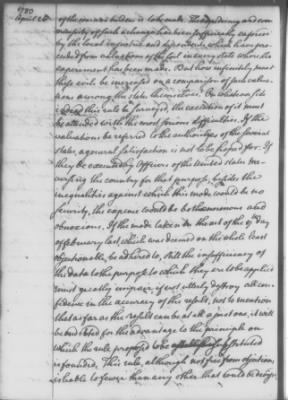 1783
April 26
of the common burdens is to be made. The expediency and even
necessity of such a change has been sufficiently enforced
by the local injustice and discontents which have pro-
ceeded from valuations of the soil in every state where the
experiment has been made. But how infinitely must
these evils be increased on a comparison of such valua-
tions among the states themselves! On whatever side
indeed this rule be surveyed, the execution of it must
be attended with the most serious difficulties. If the
valuations be referred to the authorities of the several
states, a general satisfaction is not to be hoped for. If
they be executed by Officers of the United States tra-
versing the country for that purpose, besides the
inequalities against which this mode would be no
security, the expence would be both enormous and
obnoxious. If the mode taken in the act of the 17th day
of February last, which was deemed on the whole least
objectionable, be adhered to, still the insufficiency of
the data to the purpose to which they are to be applied
must greatly impair, if not utterly destroy all con-
fidence in the accuracy of the result, not to mention
that as far as the result can be at all a just one, it will
be indebted for the advantage to the principle on
which the rule proposed to be substituted
is founded. This rule, although not free from objections,
is liable to fewer than any other that could be devised